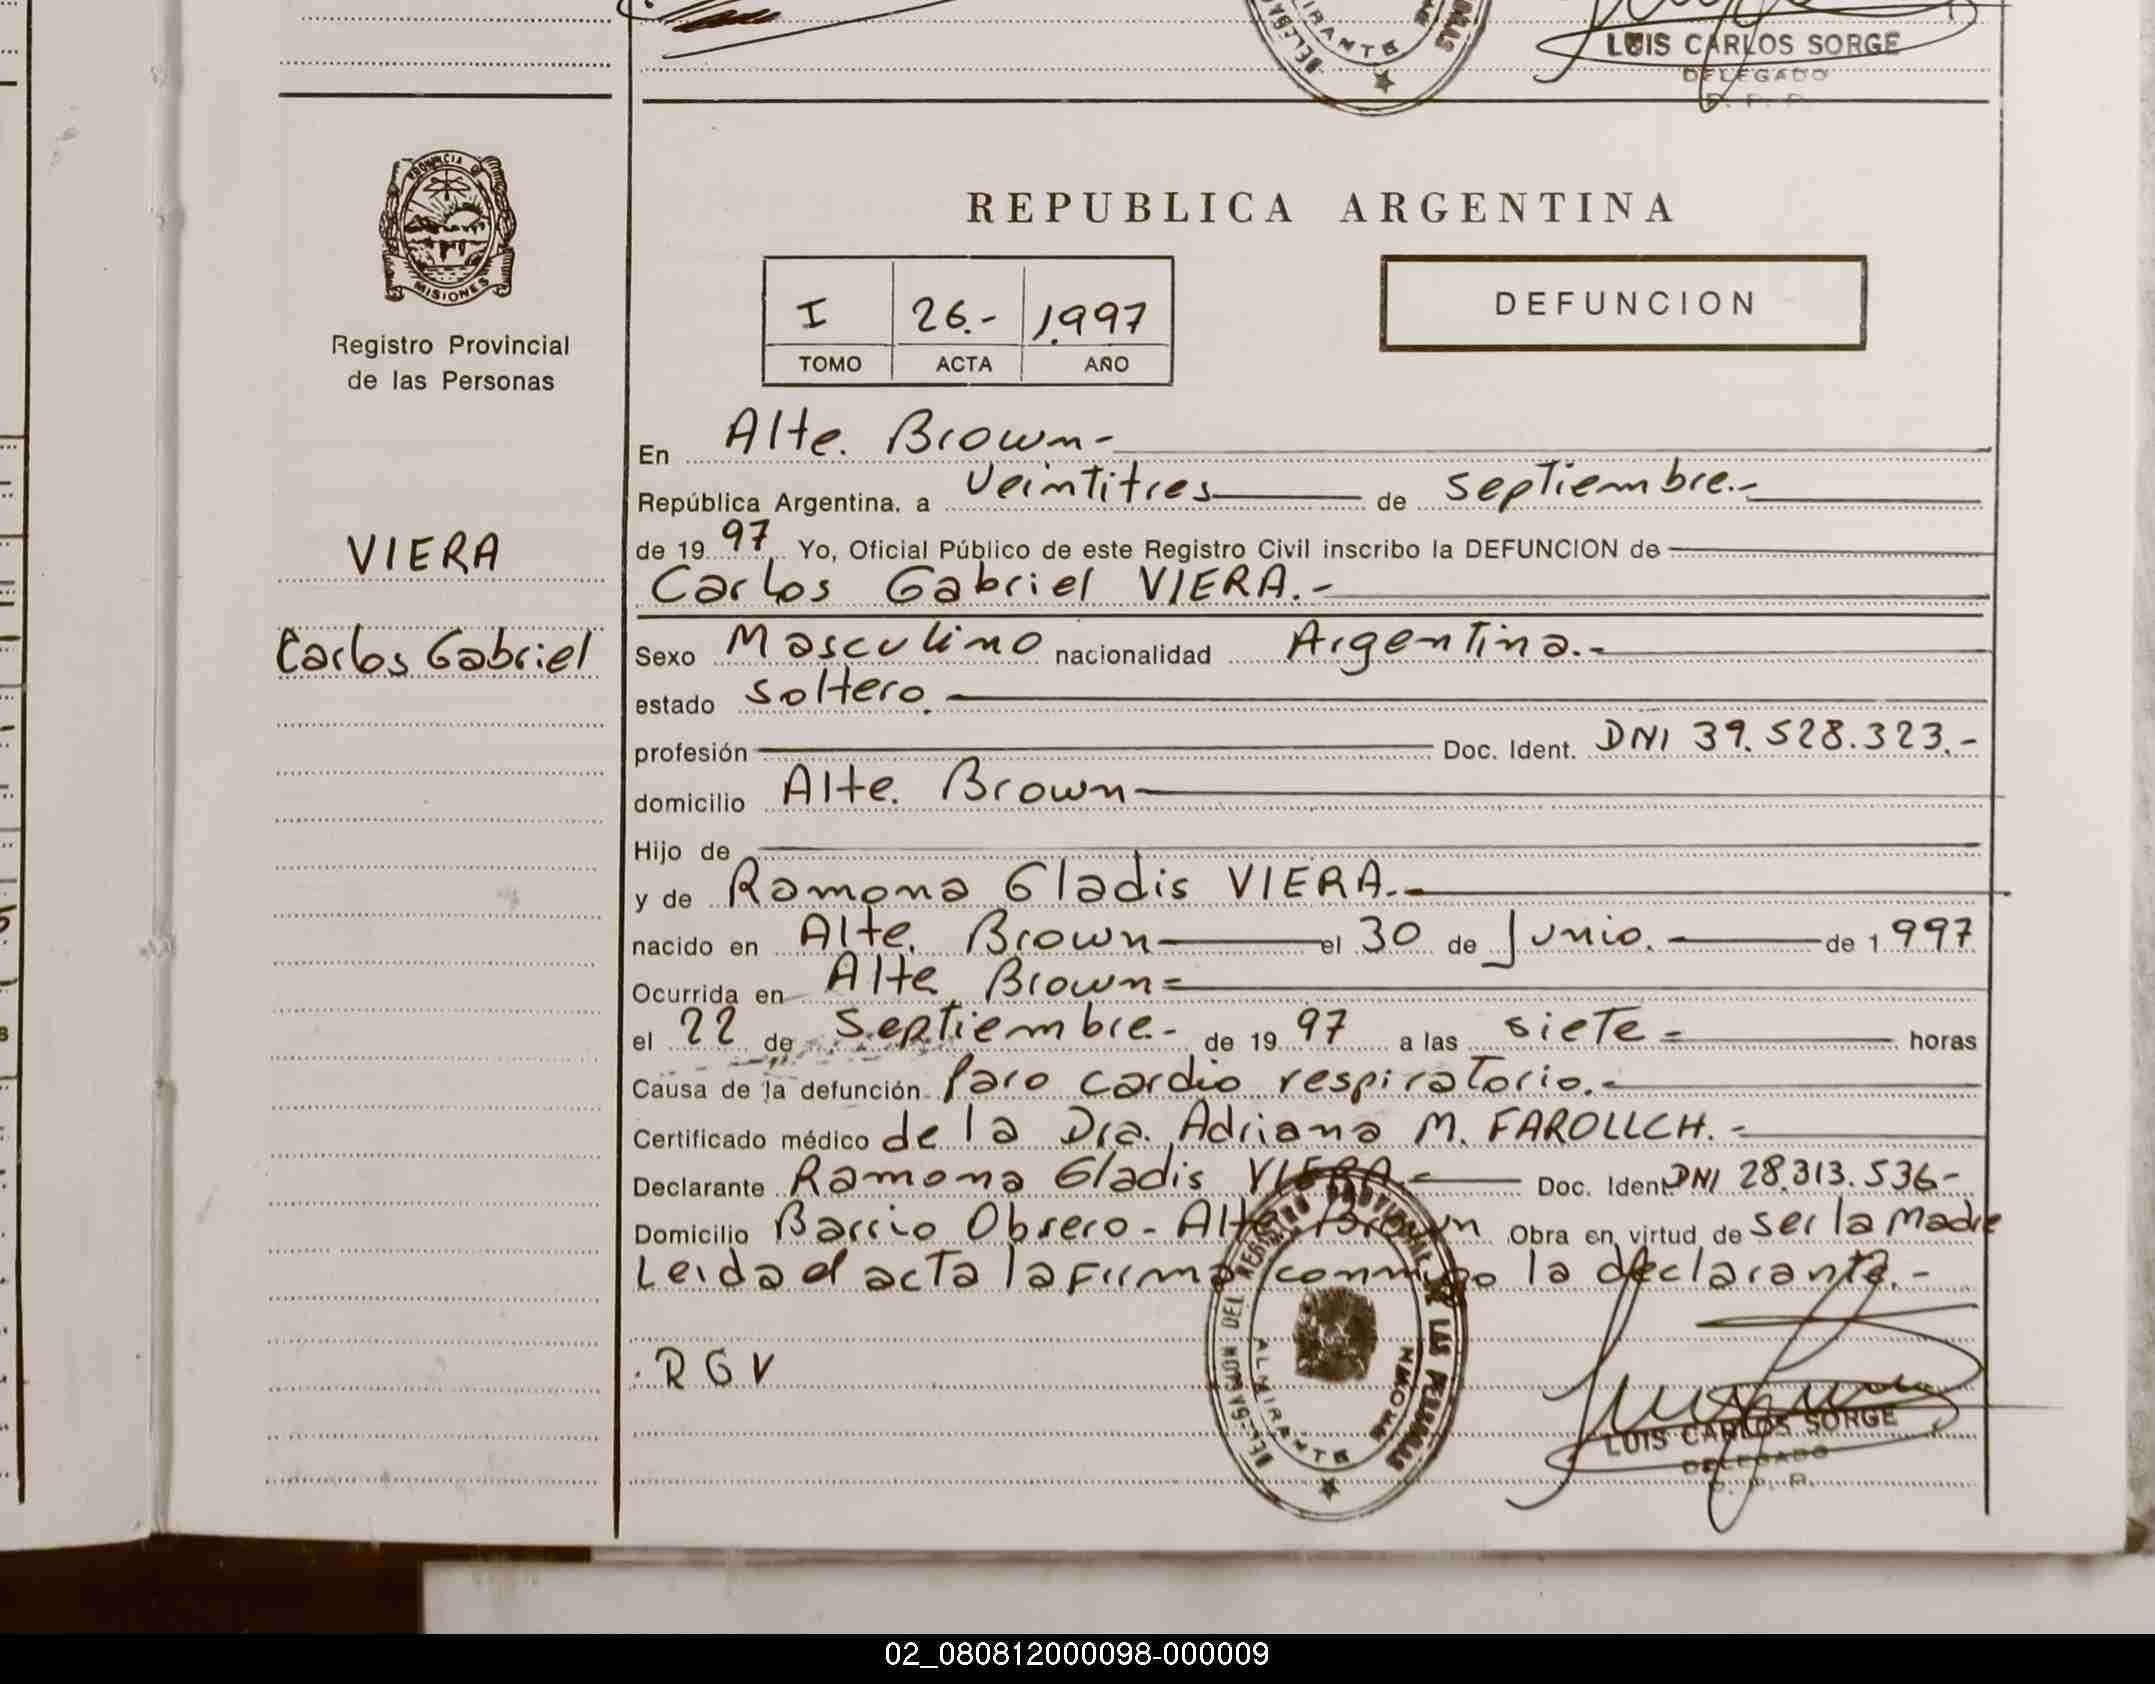 LUIS CARLOS SORGE
DELEGADO
PROVINCIA DE
MISIONES
Registro Provincial
de las Personas
VIERA
Carlos Gabriel
REPUBLICA ARGENTINA
I 26.- 1.997
TOMO ACTA AÑO
DEFUNCION
En Alte. Brown-
República Argentina, a Veintitres de septiembre.-
de 19 97 Yo, Oficial Público de este Registro Civil inscribo la DEFUNCION de
Carlos Gabriel VIERA.-
Sexo Masculino nacionalidad Argentina.-
estado soltero.
profesión Doc. Ident. DNI 39.528.323.-
domicilio Alte. Brown
Hijo de
y de Ramona Gladis VIERA.-
nacido en Alte. Brown el 30 de Junio. de 1 997
Ocurrida en Alte. Brown=
el 22 de septiembre- de 19 97 a las siete = horas
Causa de la defunción Paro cardio respiratorio.-
Certificado médico de la Dra. Adriana M. FAROLLCH.-
Declarante Ramona Gladis VIERA.- Doc. Ident DNI 28.313.536-
Domicilio Barrio Obrero - Alte Brown Obra en virtud de ser la Madre
Leida el acta la firma conmigo la declarante.-
R G V
DELEGACION DEL REGISTRO PROVINCIAL DE LAS PERSONAS
ALMIRANTE BROWN
LUIS CARLOS SORGE
DELEGADO
R. P. P.
02_080812000098-000009